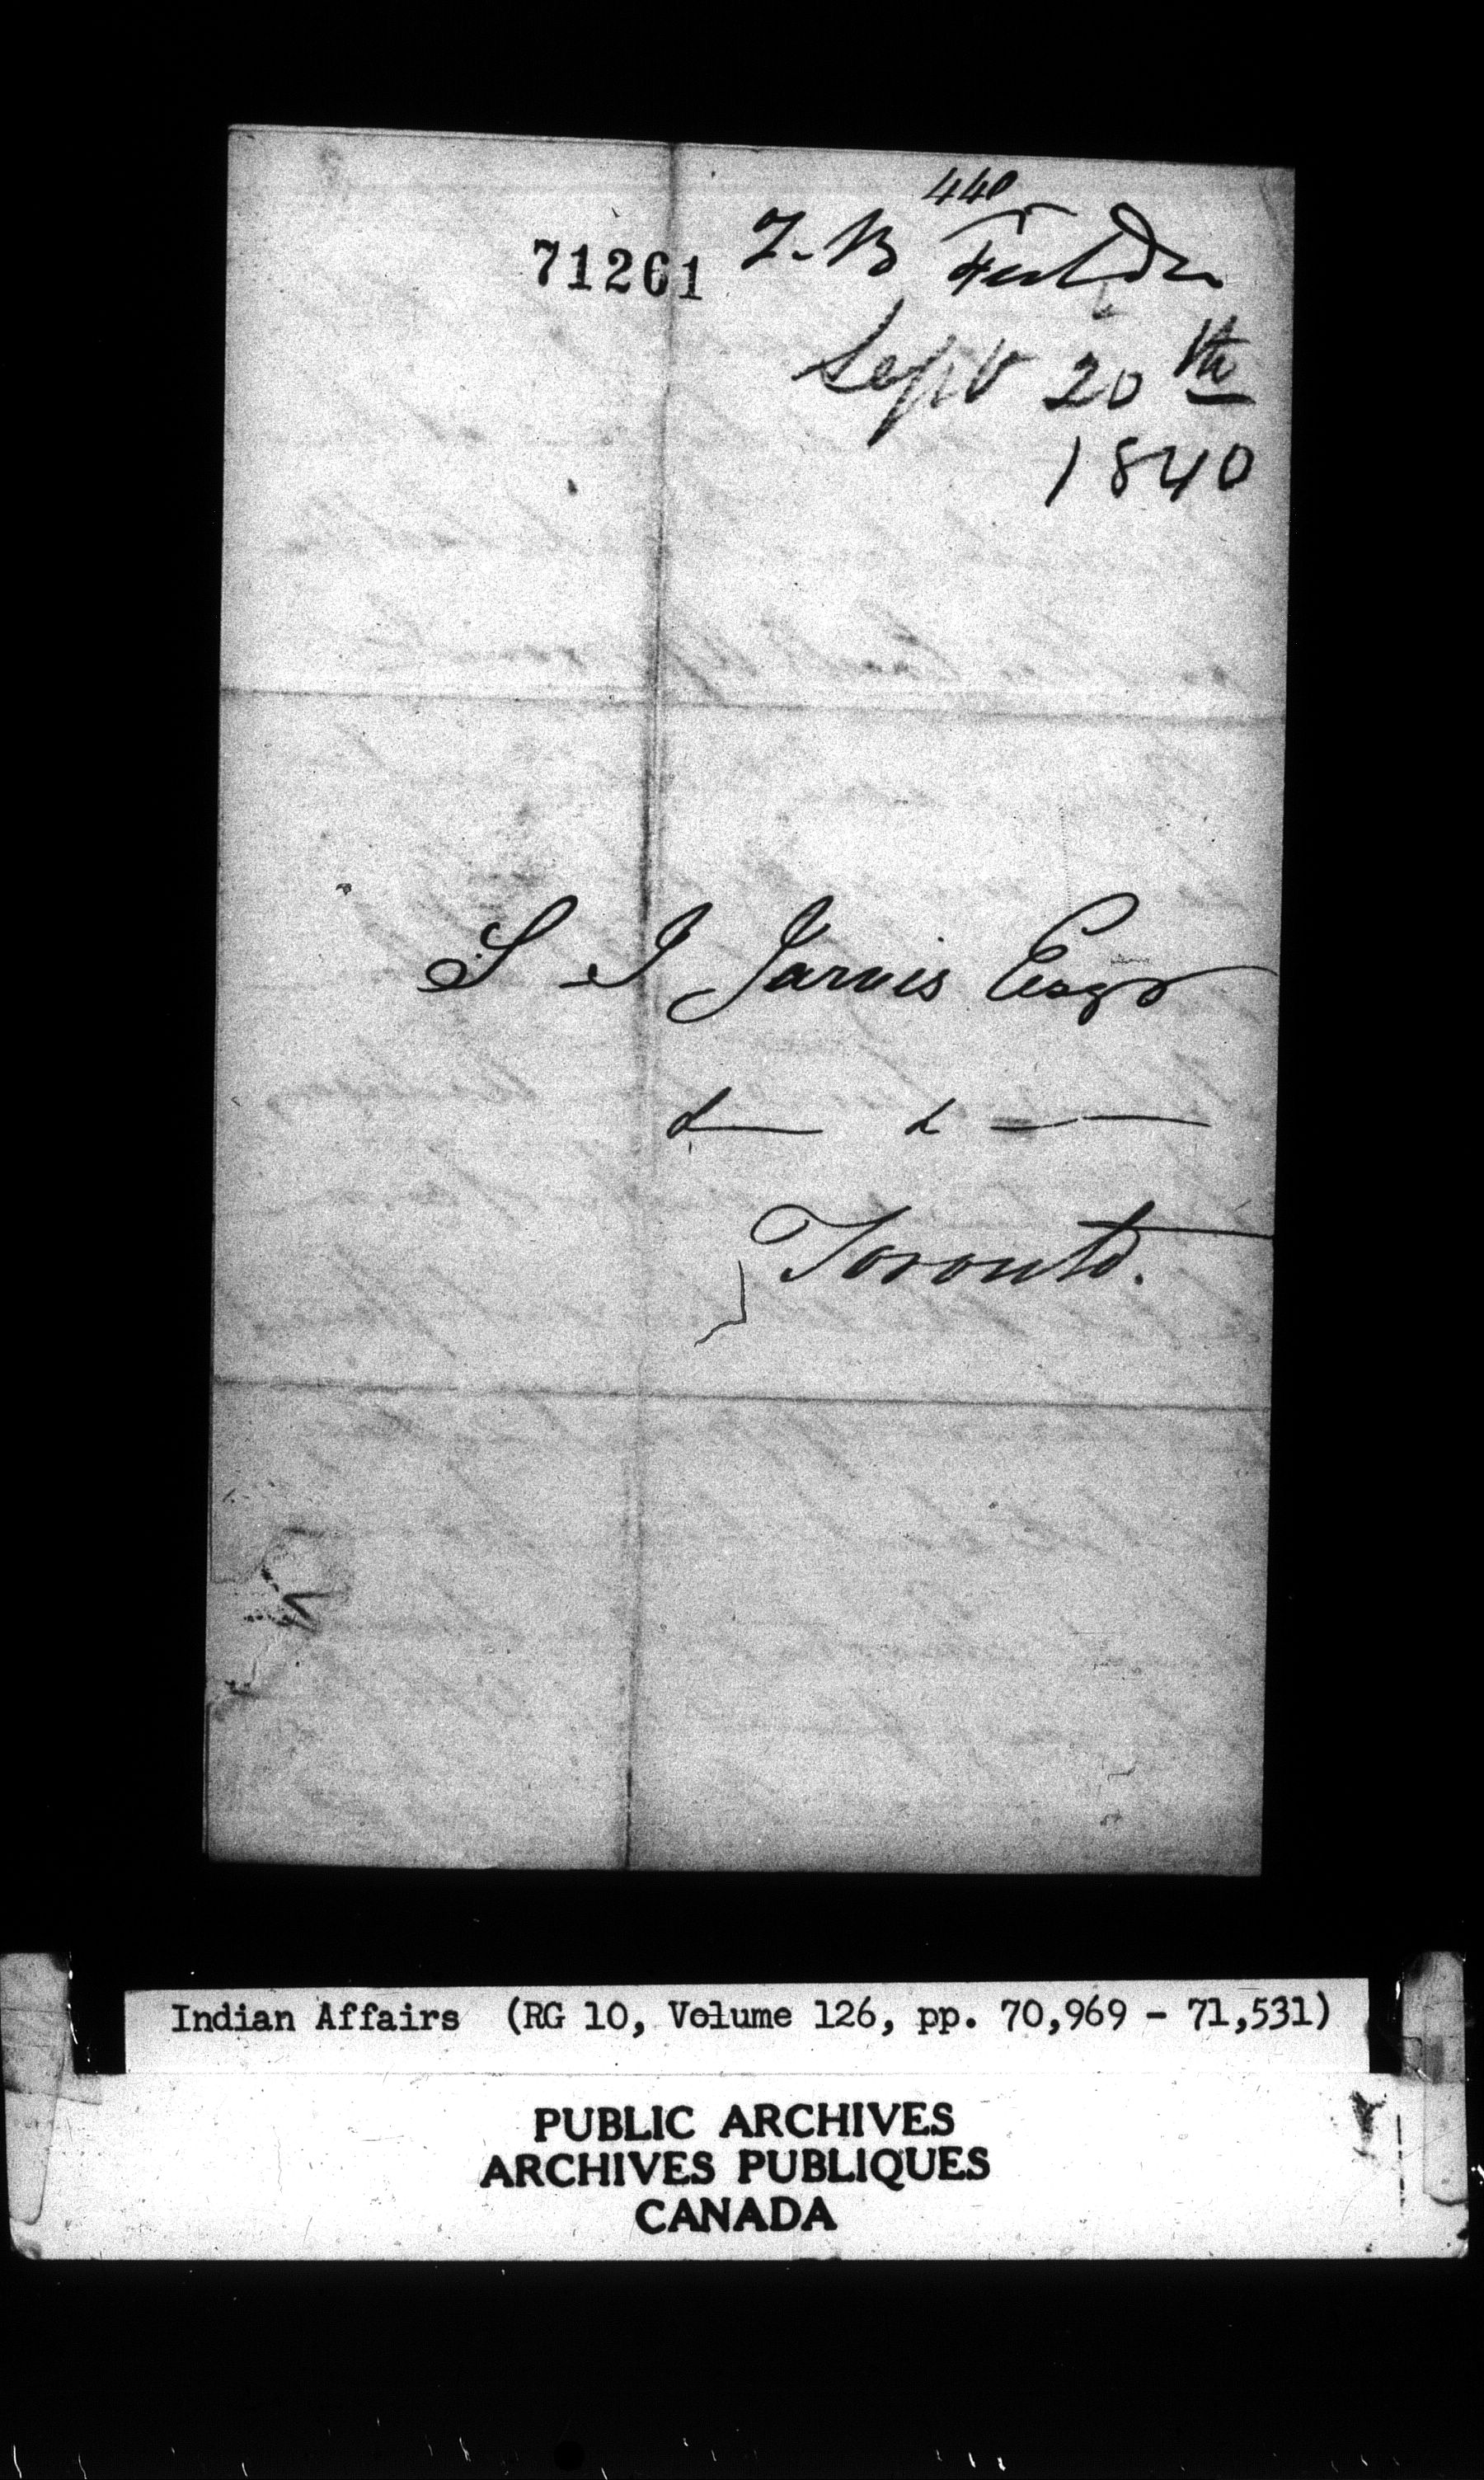 440
71261
Septr 20th
1840
S J Jarvis Esqr
Toronto.
Indian Affairs (RG 10, Volume 126, pp. 70,969 - 71,531)
PUBLIC ARCHIVES
ARCHIVES PUBLIQUES
CANADA